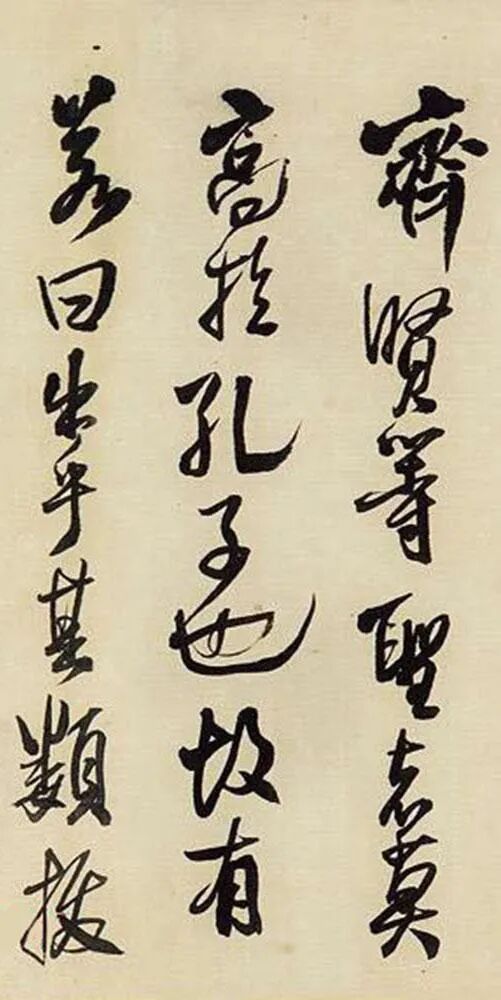 齊賢等聖者莫
高於孔子也故有
若曰出乎其類拔